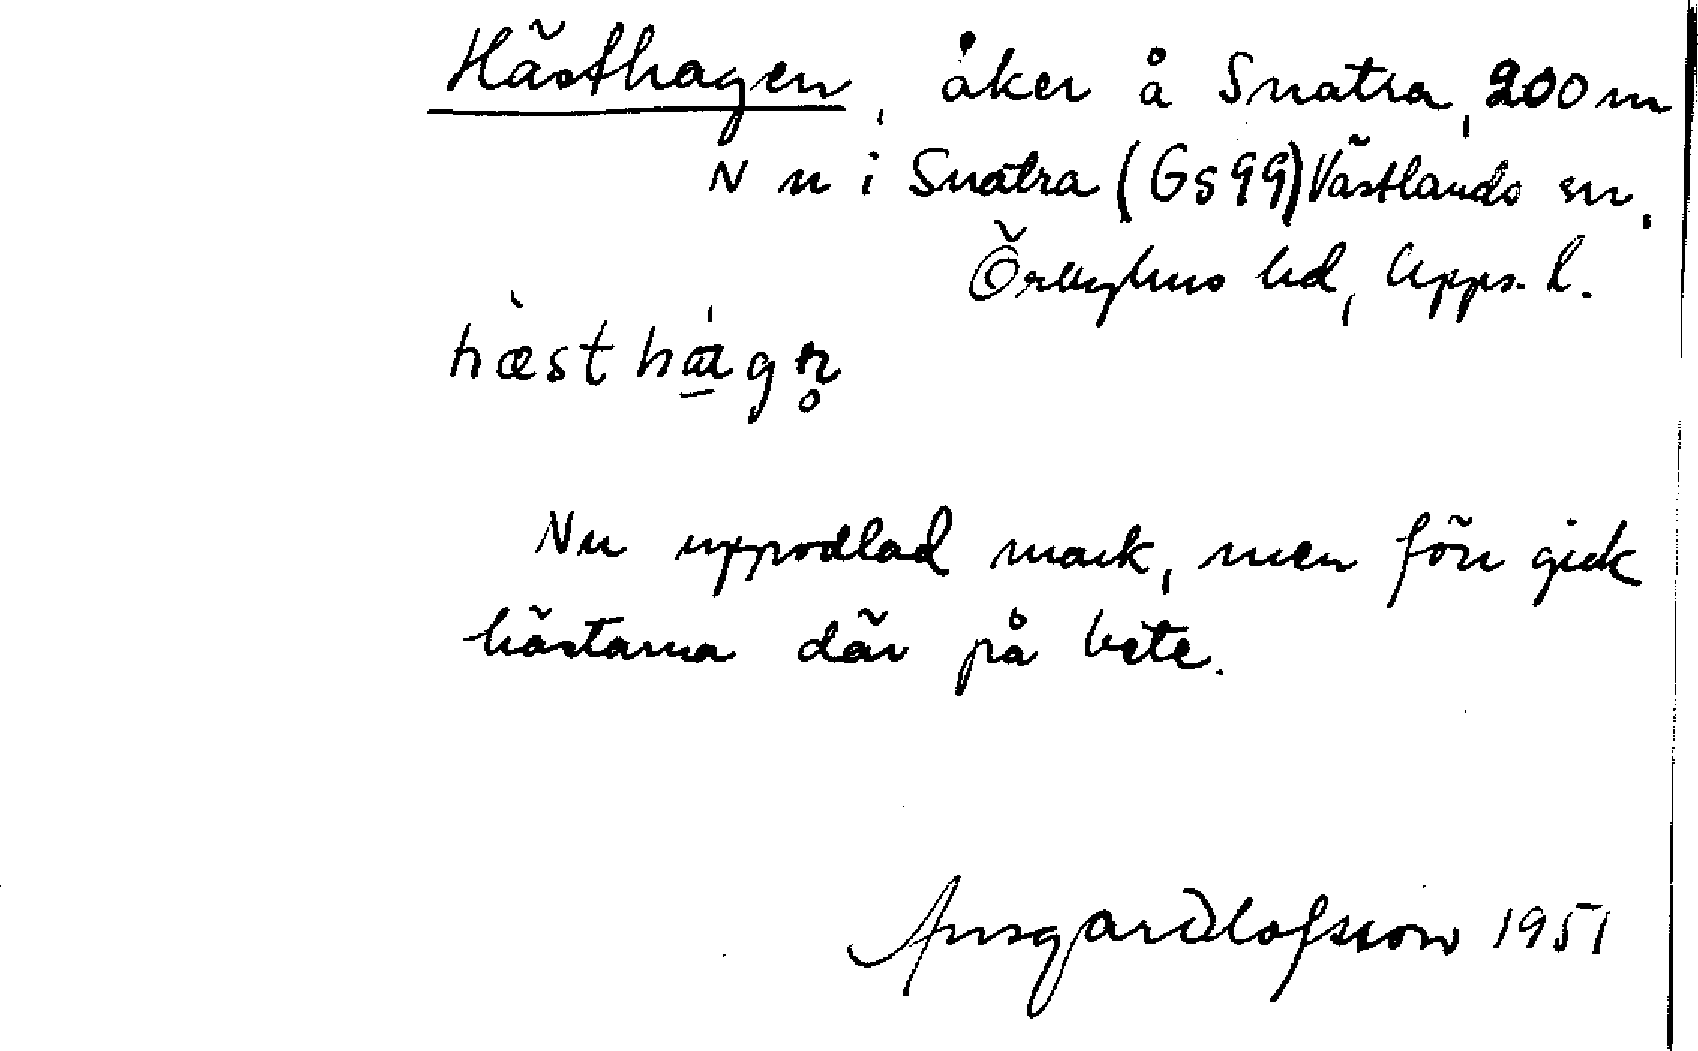 Hästhagen, åker å Snatra, 200 m
N u i Snatra (Gs 99) Västlands sn,
Örbyhus hd, Upps. l.
hæ̀sthágn̥
Nu uppodlad mark, men förr gick
hästarna där på bete.
Ansgar Olofsson 1951